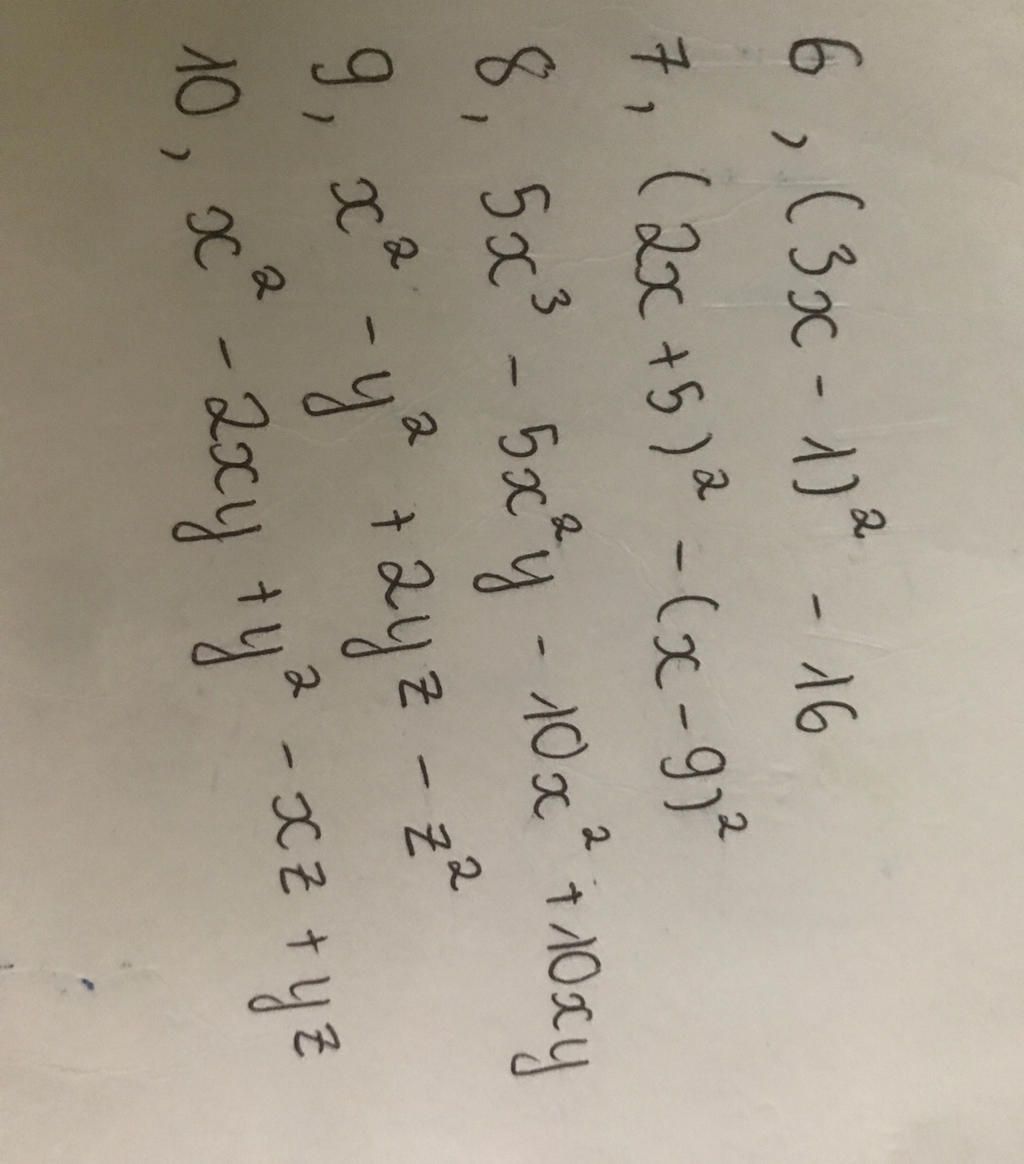 6, (3x - 1)² - 16
7, (2x + 5)² - (x - 9)²
8, 5x³ - 5x²y - 10x² + 10xy
9, x² - y² + 2yz - z²
10, x² - 2xy + y² - xz + yz